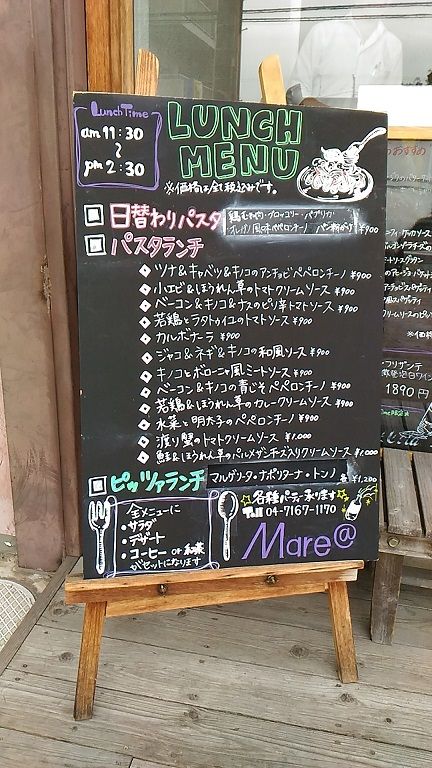 Lunch Time
am 11:30
〜
pm 2:30
LUNCH
MENU
※価格は全て税込みです。
日替わりパスタ
鶏むね肉・ブロッコリー・パプリカ
オレガノ風味ペペロンチーノ
¥900
パスタランチ
ツナ&キャベツ&キノコのアンチョビペペロンチーノ ¥900
小エビ&ほうれん草のトマトクリームソース ¥900
ベーコン&キノコ&ナスのピリ辛トマトソース ¥900
若鶏とラタトゥイユのトマトソース ¥900
カルボナーラ ¥900
ジャコ&ネギ&キノコの和風ソース ¥900
キノコとボローニャ風ミートソース ¥900
ベーコン&キノコの青じそペペロンチーノ ¥900
若鶏&ほうれん草のカレークリームソース ¥900
水菜と明太子のペペロンチーノ ¥900
渡り蟹のトマトクリームソース ¥1,000
鮭&ほうれん草のパルメザンチーズ入りクリームソース ¥1,000
ピッツァランチ
マルゲリータ・ナポリターナ・トンノ 各 ¥1,200
全メニューに
・サラダ
・デザート
・コーヒー or 紅茶
がセットになります
各種パーティー承ります
TEL 04-7167-1170
Mare@
1890円